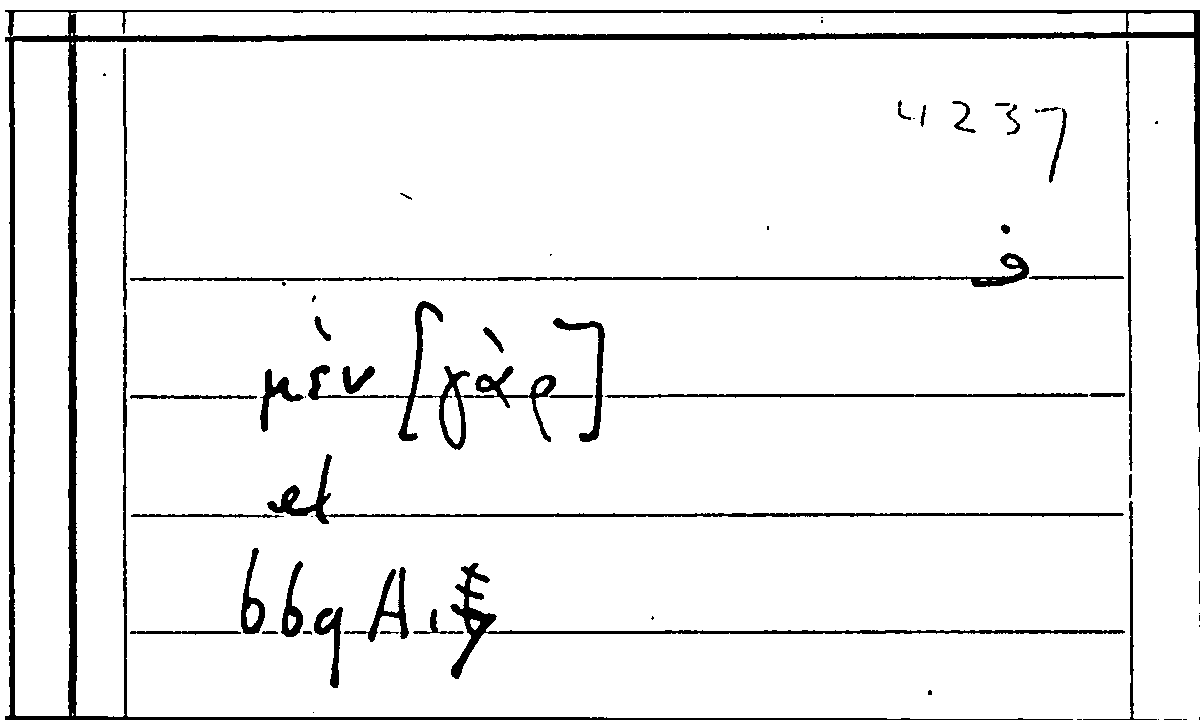 4237
ف
μὲν [γὰρ]
et
669 A.